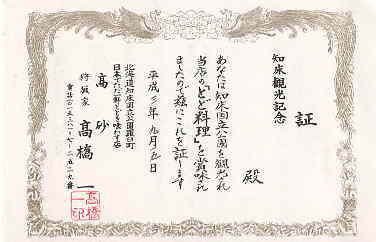 知床観光記念
証
殿
あなたは知床国立公園を観光され
当店の「とど料理」を賞味され
ましたので茲にこれを証します
平成三年九月五日
北海道知床国立公園羅臼町
日本でただ一軒とどを味わす店
高砂
狩猟家 高橋一
高橋一印